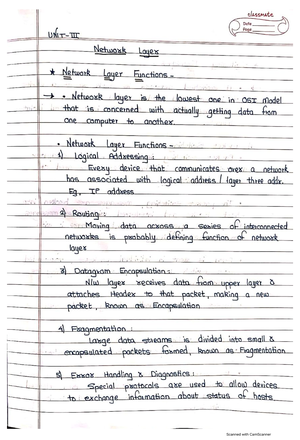 classmate
Date
Page
UNIT-III
Network Layer
★ Network Layer Functions -
→ • Network layer is the lowest one in OSI model
that is concerned with actually getting data from
one computer to another.
• Network Layer Functions -
1) Logical Addressing :
Every device that communicates over a network
has associated with logical address / layer three addr.
Eg. IP address
2) Routing :
Moving data across a series of interconnected
networks is probably defining function of network
layer
3) Datagram Encapsulation :
N/w layer receives data from upper layer &
attaches Header to that packet, making a new
packet, known as Encapsulation
4) Fragmentation :
Large data streams is divided into small &
encapsulated packets formed, known as Fragmentation
5) Error Handling & Diagnostics :
Special protocols are used to allow devices
to exchange information about status of hosts
Scanned with CamScanner